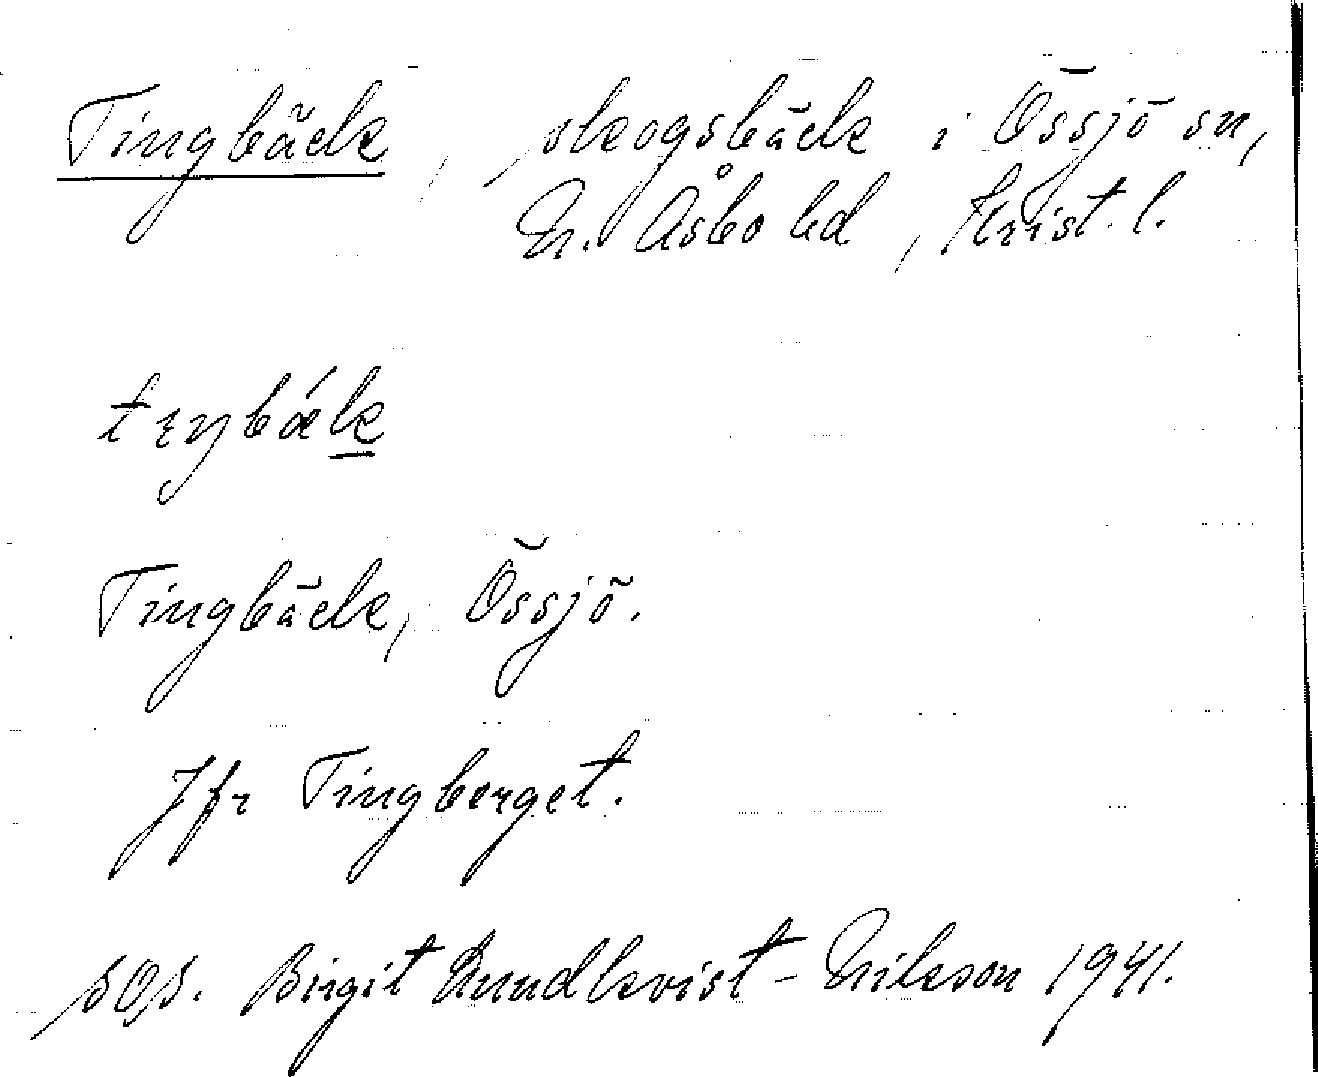 Tingbäck, skogsbäck i Össjö sn,
N. Åsbo hd, Krist. l.
Tingbäck, Össjö.
Jfr Tingberget.
sOs. Birgit Rundkvist-Nilsson 1941.